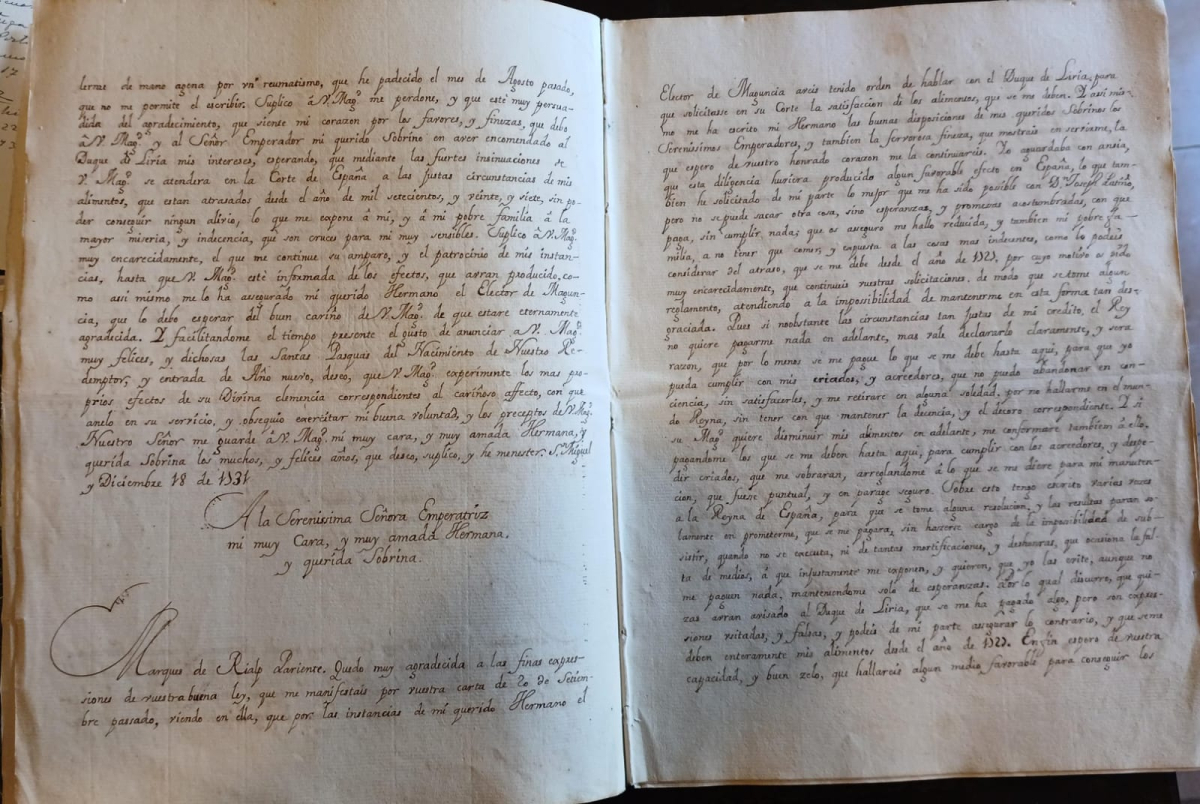 lerme de mano agena por vn reumatismo, que he padecido el mes de Agosto pasado,
que no me permite el escribir. Suplico â V. Mag.d me perdone, y que esté muy persua-
dida del agradecimiento, que siente mi corazon por los favores, y finezas, que debo
â V. Mag.d y al Señor Emperador mi querido Sobrino en aver encomendado al
Duque de Liria mis intereses, esperando, que mediante las fuertes insinuaciones de
V. Mag.d se atendera en la Corte de España a las justas circunstancias de mis
alimentos, que estan atrasados desde el año de mil setecientos, y veinte, y siete, sin po-
der conseguir ningun alivio, lo que me expone â mi, y â mi pobre familia â la
mayor miseria, y indicencia, que son cruces para mi muy sensibles. Suplico â V. Mag.d
muy encarecidamente, el que me continue su amparo, y el patrocinio de mis instan-
cias, hasta que V. Mag.d esté informada de los efectos, que avran producido, co-
mo assi mismo me lo ha assegurado mi querido Hermano el Elector de Magun-
cia, que lo debo esperar del buen cariño de V. Mag.d de que estare eternamente
agradecida. Y facilitandome el tiempo presente el gusto de anunciar a V. Mag.d
muy felices, y dichosas las Santas Pasquas del Nacimiento de Nuestro Re-
demptor, y entrada de Año nuevo, deseo, que V. Mag.d experimente los mas pro-
prios efectos de su Divina clemencia correspondientes al cariñoso affecto, con que
anelo en su servicio, y obsequio exercitar mi buena voluntad, y los preceptos de V. Mag.d
Nuestro Señor me guarde â V. Mag.d mi muy cara, y muy amada Hermana, y
querida Sobrina los muchos, y felices años, que deseo, suplico, y he menester. S.n Miguel
y Diciembre 18 de 1731
A la Sereníssima Señora Emperatriz
mi muy Cara, y muy amada Hermana,
y querida Sobrina.
Marques de Rialp Pariente. Quedo muy agradecida a las finas expres-
siones de vuestra buena ley, que me manifestais por vuestra carta de 20 de Setiem-
bre passado, viendo en ella, que por las instancias de mi querido Hermano el
Elector de Maguncia aveis tenido orden de hablar con el Duque de Liria, para
que solicitasse en su Corte la satisfaccion de los alimentos, que se me deben. Y assi mis-
mo me ha escrito mi Hermano las buenas disposiciones de mis queridos Sobrinos los
Serenissimos Emperadores, y tambien la fervorosa fineza, que mostrais en servirme, la
que espero de vuestro honrado corazon me la continuareis. Yo aguardaba con ansia,
que esta diligencia huviera producido algun favorable efecto en España, lo que tam-
bien he solicitado de mi parte lo mejor que me ha sido possible con D. Joseph Patiño,
pero no se puede sacar otra cosa, sino esperanzas, y promezas acostumbradas, con que
paga, sin cumplir nada; que os asseguro me hallo reducida, y tambien mi pobre fa-
milia, a no tener que comer, y expuesta a las cosas mas indecentes, como lo podeis
considerar del atraso, que se me debe desde el año de 1727, por cuyo motivo os pido
muy encarecidamente, que continueis vuestras solicitaciones, de modo que se tome algun
reglamento, atendiendo a la impossibilidad de mantenerme en esta forma tan des-
graciada. Pues si noobstante las circunstancias tan justas de mi credito, el Rey
no quiere pagarme nada en adelante, mas vale declararlo claramente, y sera
razon, que por lo menos se me pague lo que se me debe hasta aqui, para que yo
pueda cumplir con mis criados, y acreedores, que no puedo abandonar en con-
ciencia, sin satisfacerles, y me retirare en alguna soledad, por no hallarme en el mun-
do Reyna, sin tener con que mantener la decencia, y el decoro correspondiente. Y si
su Mag.d quiere disminuir mis alimentos en adelante, me conformare tambien a ello,
pagandome los que se me deben hasta aqui, para cumplir con los acreedores, y despe-
dir criados, que me sobraran, arreglandome â lo que se me diere para mi manuten-
cion, que fuese puntual, y en parage seguro. Sobre esto tengo escrito varias vezes
a la Reyna de España, para que se tome alguna resolucion, y las resultas paran so-
lamente en prometerme, que se me pagara, sin hazerse cargo de la impossibilidad de sub-
sistir, quando no se executa, ni de tantas mortificaciones, y deshonras, que ocasiona la fal-
ta de medios, â que injustamente me exponen, y quieren, que yo las evite, aunque no
me paguen nada, manteniendome solo de esperanzas. Por lo qual discurro, que qui-
zas avran avisado al Duque de Liria, que se me ha pagado algo, pero son expres-
siones vsitadas, y falsas, y podeis de mi parte assegurar lo contrario, y que se me
deben enteramente mis alimentos desde el año de 1727. En fin espero de vuestra
capacidad, y buen zelo, que hallareis algun medio favorable para conseguir los